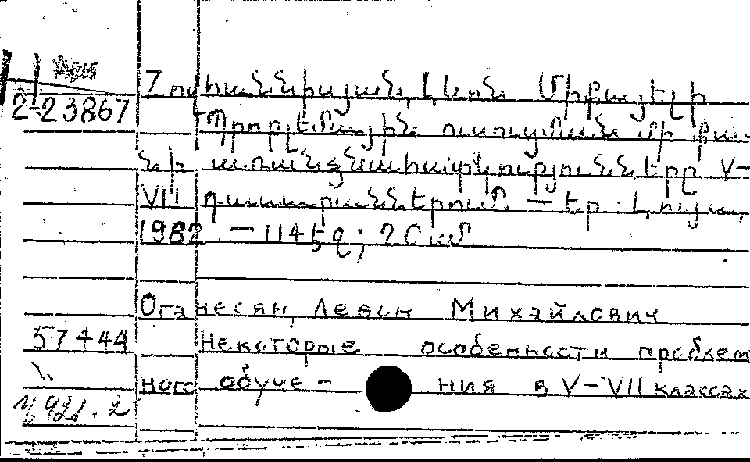 2-23867
Հովհաննիսյան, Լևոն Միքայելի
Պրոբլեմային ուսուցման մի քա
նի առանձնահատկություններ V-
VII դասարաններում — Եր.: Լույս,
1982 — 114 էջ; 20 սմ
Оганесян, Левон Михайлович
57444 Некоторые особенности проблем
ного обуче- ния в V-VII классах